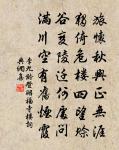 旅懷秋興正無涯
獨倚危樓四望賒
谷變陵遷何處問
滿川空有舊煙霞
李九齡登昭福寺樓